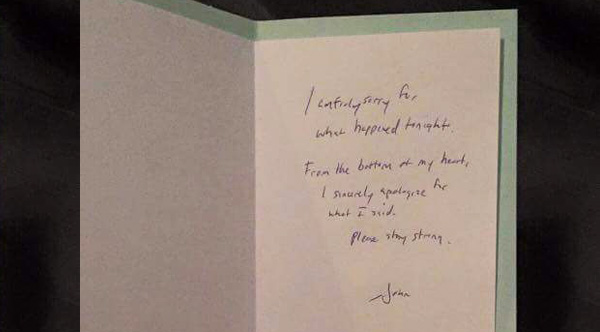 I sorry for
what happened tonight.
From the bottom of my heart,
I sincerely apologize for
what I said.
Please stay strong.
John